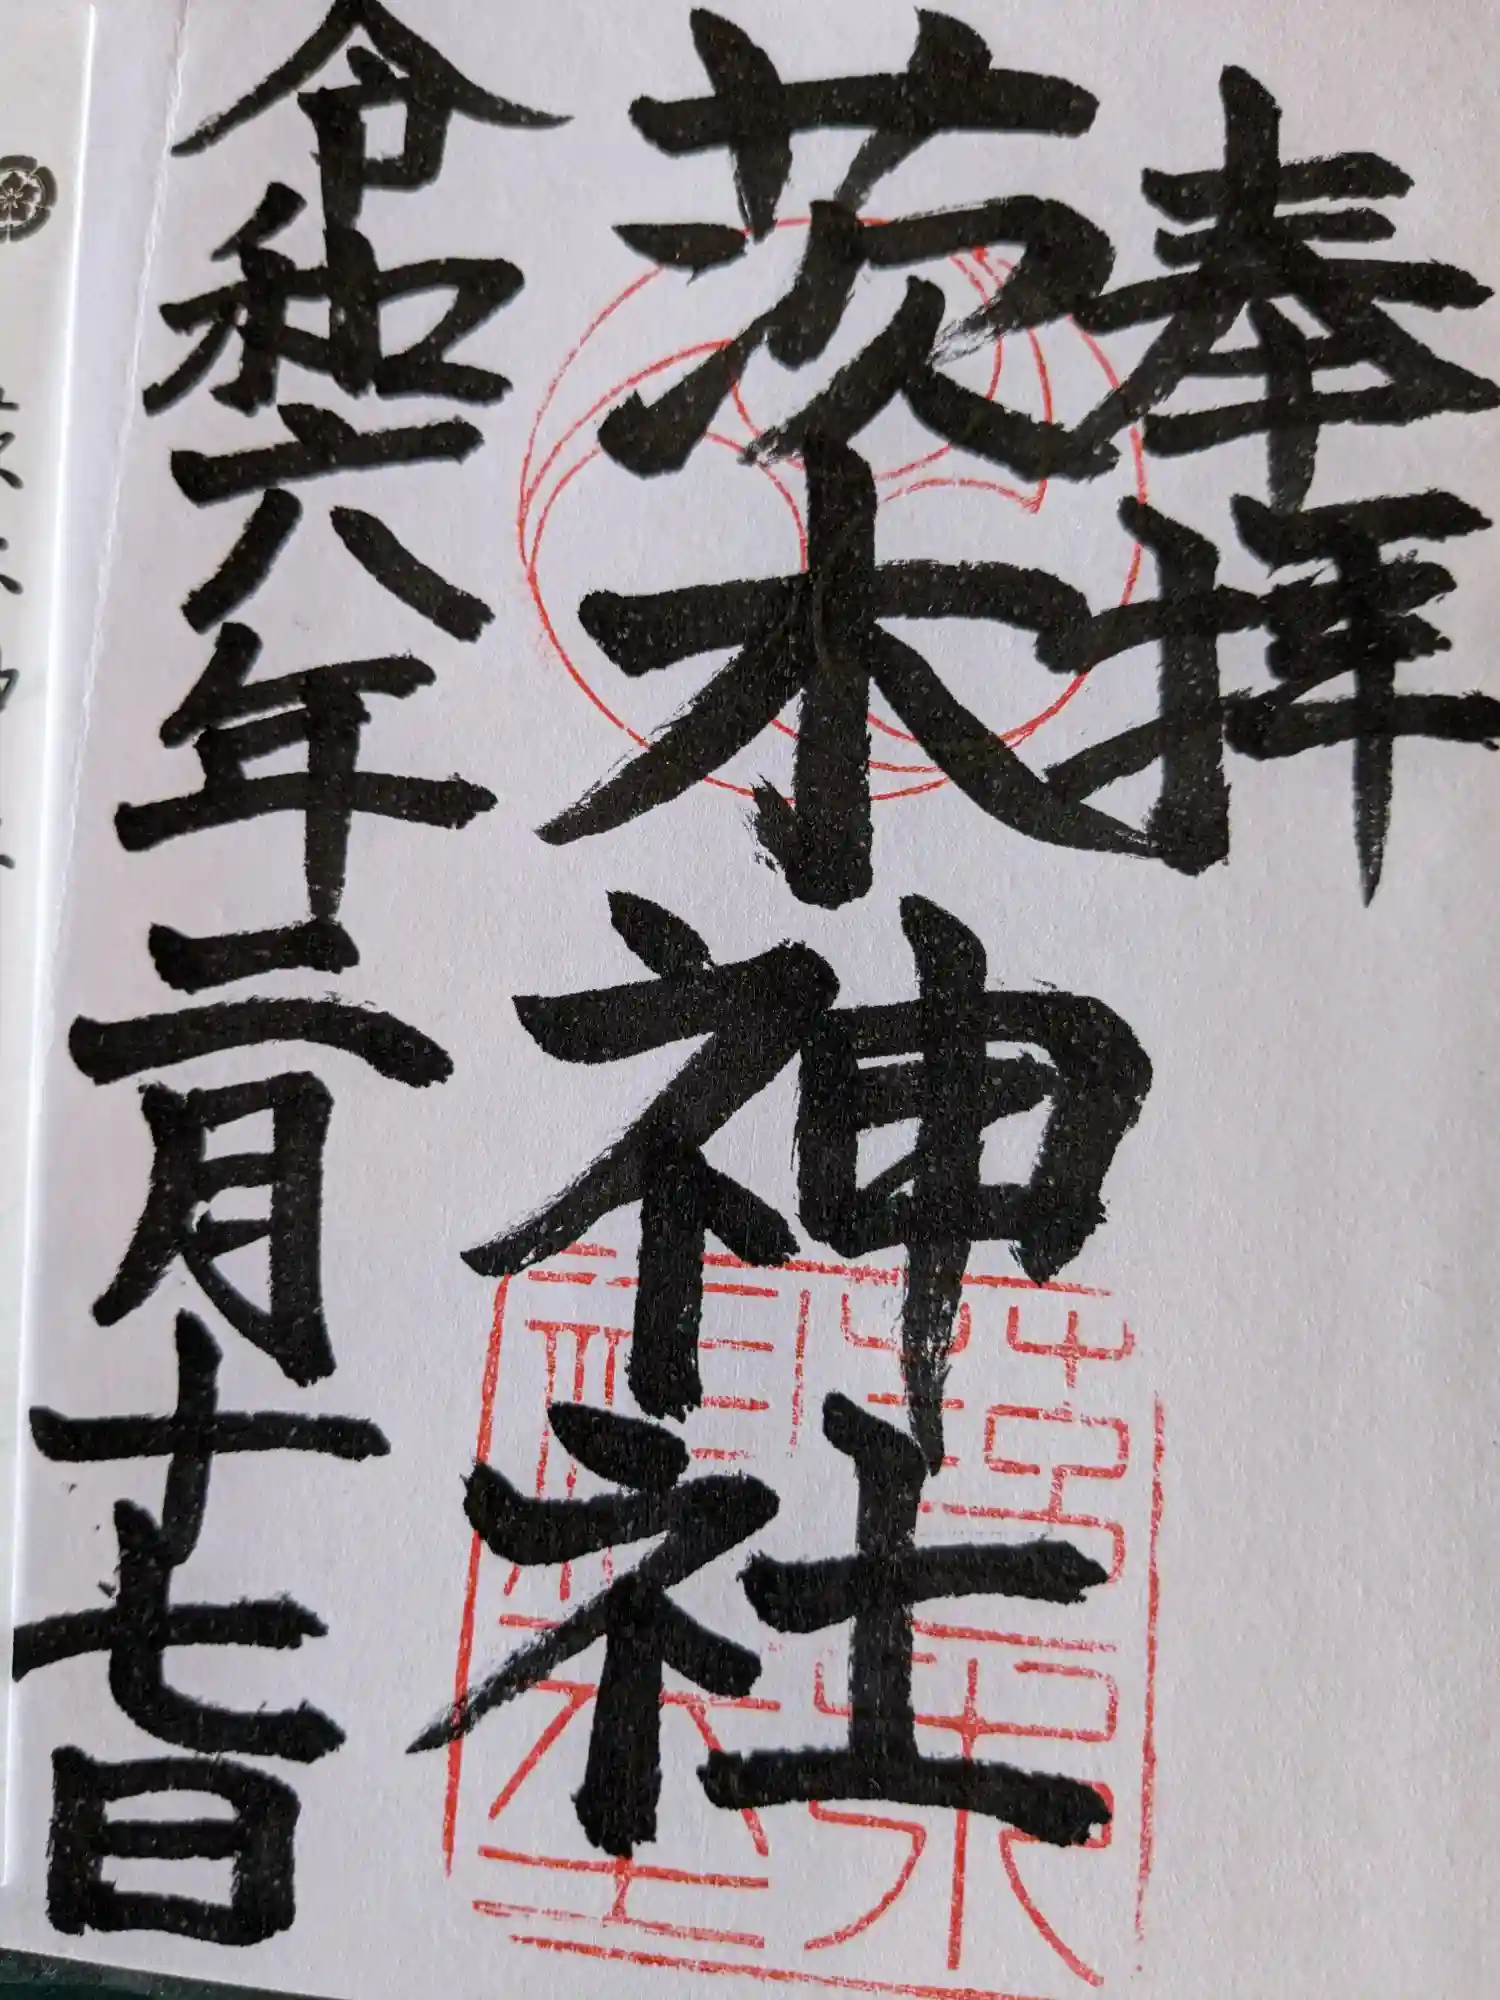 奉拝
茨木神社
令和六年二月十七日